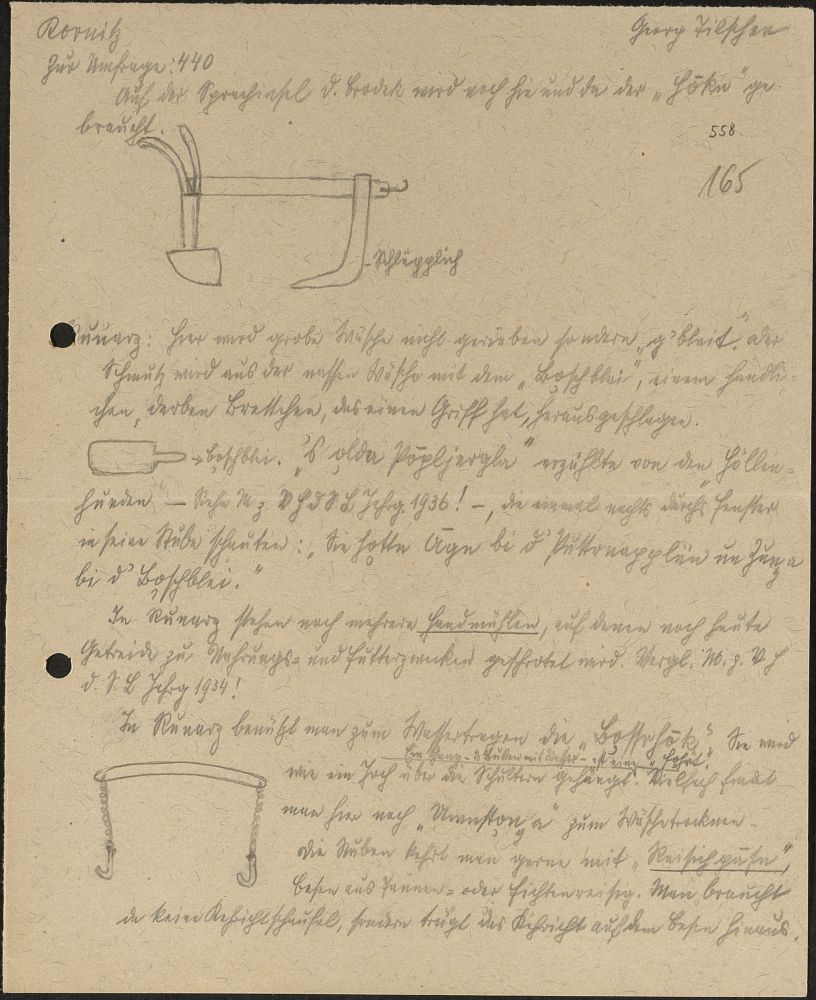 Kornitz
Georg Tilscher
Zur Umfrage: 440
Auf der Sprachinsel d. Brodek wird noch hie und da der „Hōkn" ge-
braucht.
558
165
Schlüpplich
Runarz: Hier wird grobe Wäsche nicht gerieben sondern „g'bleit", oder
Schmutz wird aus der nassen Wäsche mit dem „Boschblei", einem handli-
chen, derben Brettchen, das einen Griff hat, herausgeschlagen.
→ Boschblei. „'S olda Pōpljergla" erzählte von den Höllen-
hunden – Siehe M z VhdSL Jahrg. 1936! –, die einmal nachts durchs Fenster
in seine Stube schauten: „Sie hotta Āgn bi d' Puttrnapplen un Zunga
bi d' Boschblei."
In Runarz stehen noch mehrere Handmühlen, auf denen noch heute
Getreide zu Nahrungs- und Futterzwecken geschrotet wird. Vergl. M. z. V h
d. S. L Jahrg 1934!
In Runarz benützt man zum Wassertragen die „Bossrhōk". Sie wird
Ein Gang - 2 Butten mit Wasser - ist eine „Fohrt".
wie ein Joch über die Schultern gehängt. Vielfach findet
man hier noch „Umstonga" zum Wäschetrocknen.
Die Stuben kehrt man gerne mit „Reisichpasn",
Besen aus Tannen- oder Fichtenreisig. Man braucht
da keine Kehrichtschaufel, sondern trägt das Kehricht auf dem Besen hinaus.